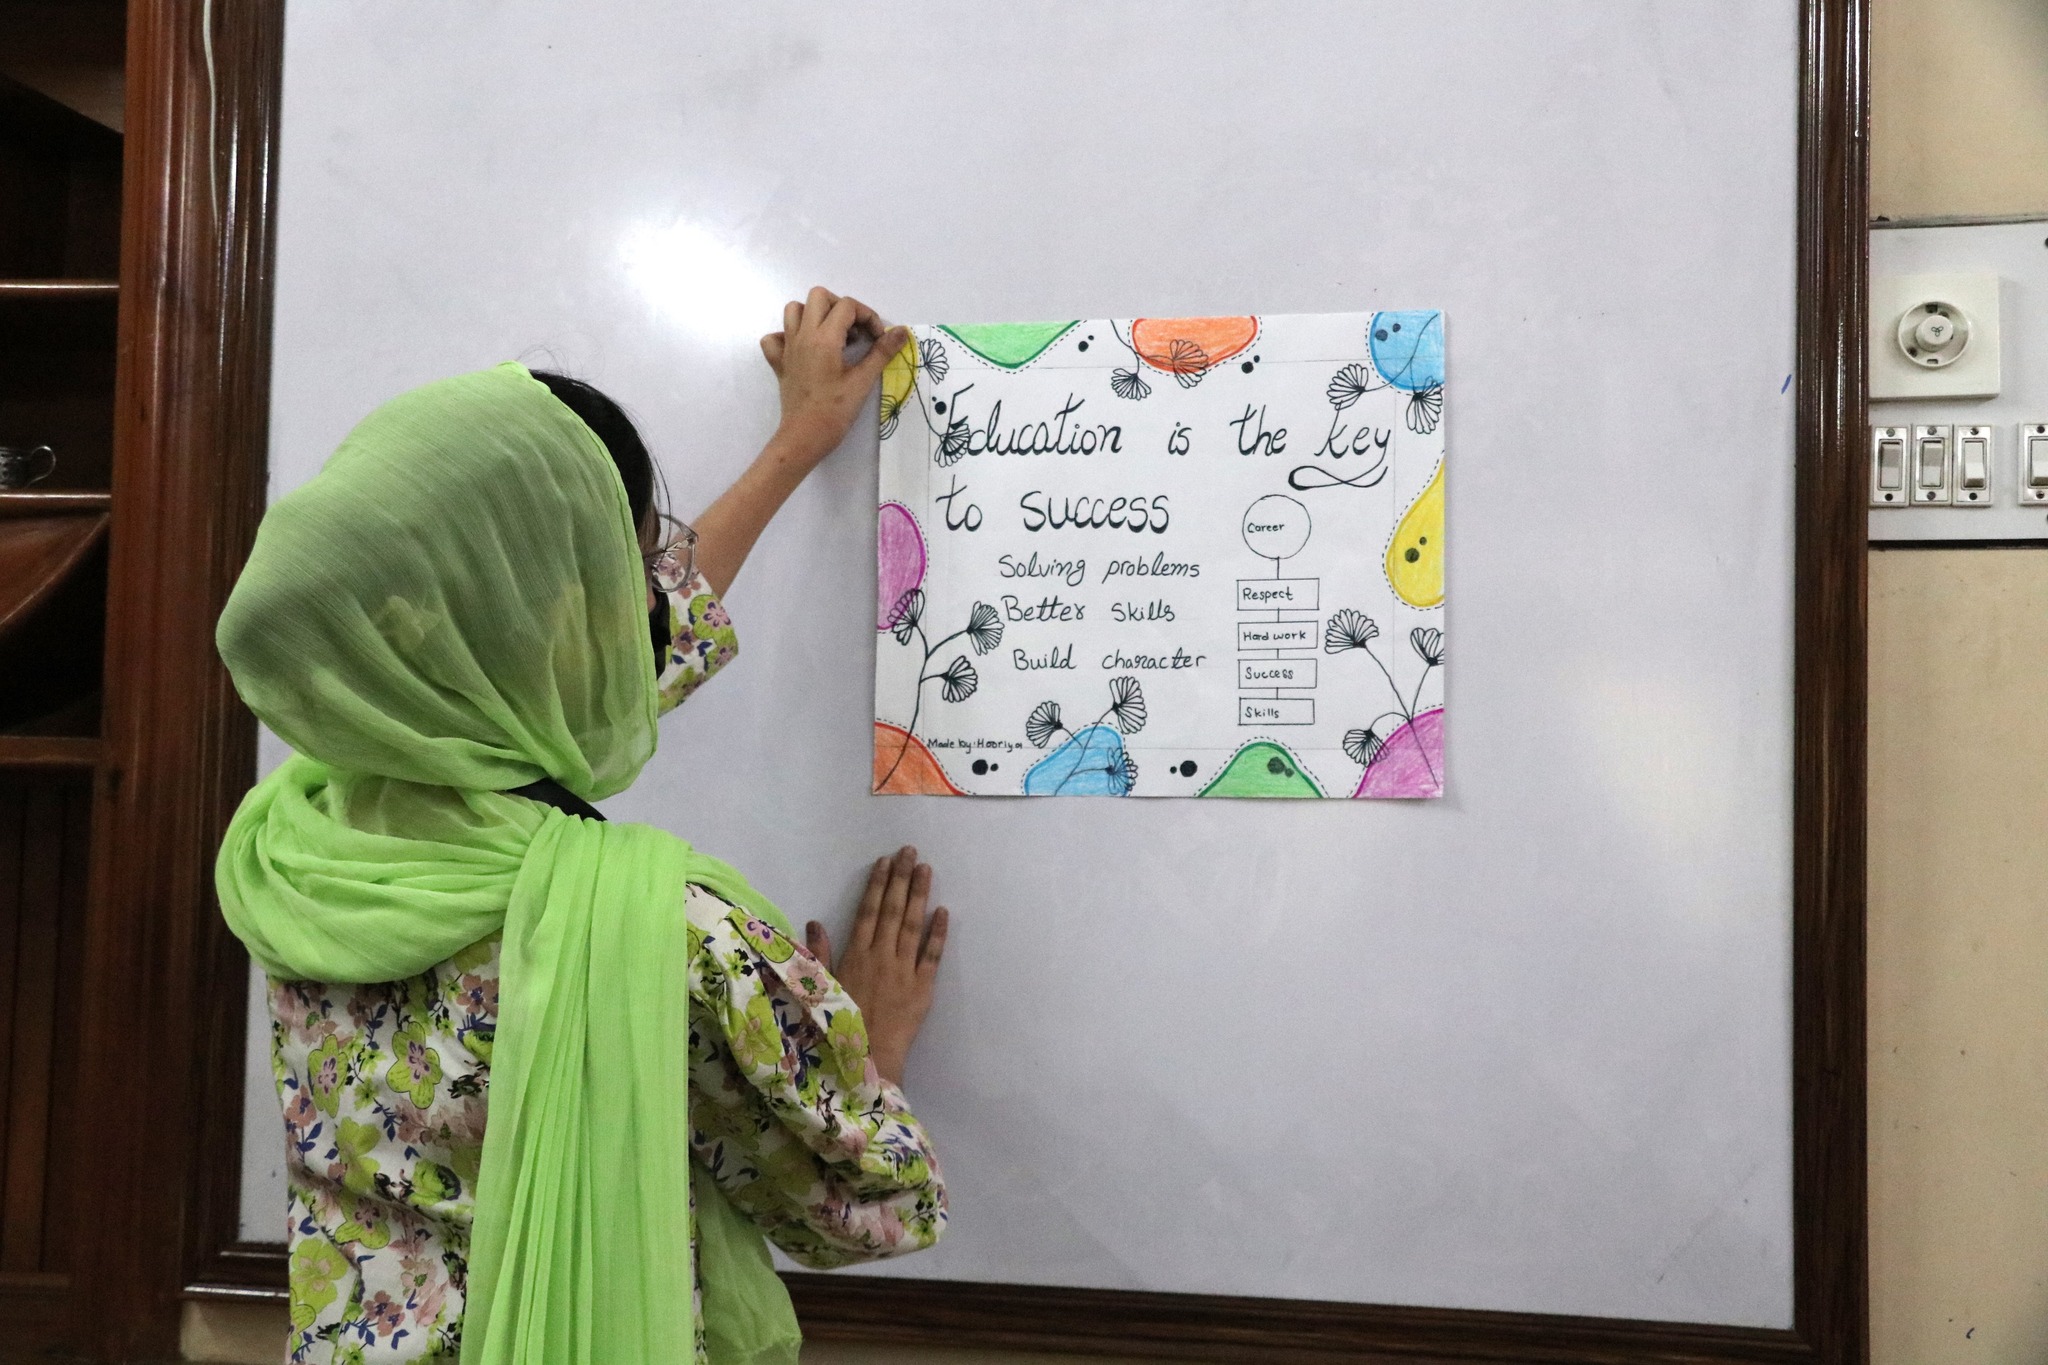 Education is the key
to success
Solving problems
Better Skills
Build character
Career
Respect
Hard work
Success
Skills
Made by: Hooriya